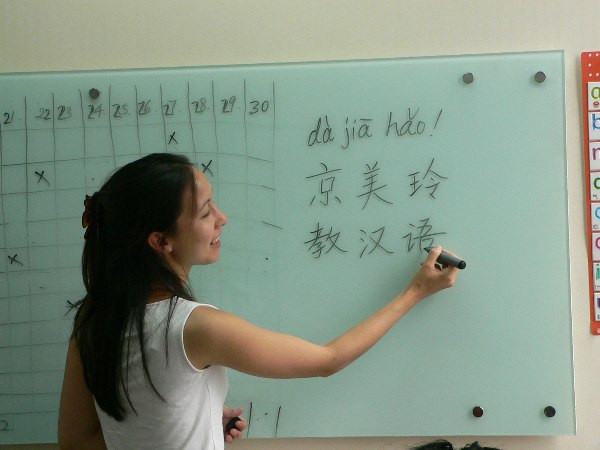 21 22 23 24 25 26 27 28 29 30
dà jiā hǎo!
京美玲
教汉语